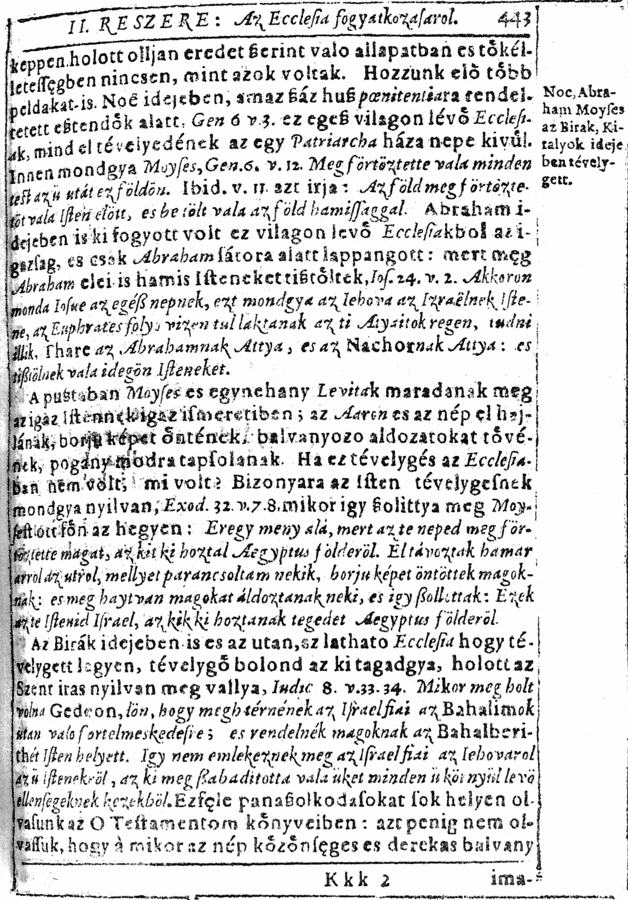 II. RESZERE: Az Ecclesia fogyatkozasarol. 443
keppen, holott olljan eredet ßerint valo allapatban es tókél-
letessęgben nincsen, mint azok voltak. Hozzunk elò tóbb
peldakat-is. Noë idejeben, amaz ßáz huß pœnitentiara rendel-
tetett eßtendók alatt, Gen 6 v.3. ez egeß vilagon lévó Ecclesi-
ak, mind el tévelyedének az egy Patriarcha háza nepe kivúl.
Innen mondgya Moyses, Gen.6. v. 12. Meg förtöztette vala minden
test az ü utát ez földön. Ibid. v. 11 azt irja: Az föld meg förtözte-
töt vala Isten elött, es be tölt vala az föld hamissaggal. Abraham i-
dejeben is ki fogyott volt ez vilagon levó Ecclesiakbol az i-
gazsag, es csak Abraham sátora alatt lappangott: mert meg
Abraham elei is hamis Isteneket tißtóltek, Ios. 24. v. 2. Akkoron
monda Iosue az egéß nepnek, ezt mondgya az Iehova az Izraëlnek Iste-
ne, az Euphrates folyo vizen tul laktanak az ti Atyaitok regen, tudni
illik, Thare az Abrahamnak Attya, es az Nachornak Attya: es
tißtölnek vala idegön Isteneket.
A pußtaban Moyses es egynehany Levitak maradanak meg
az igaz Istennek igaz ismeretiben; az Aaron es az nép el haj-
lának, borju képet óntének, balvanyozo aldozatokat tóvé-
nek, pogány modra tapsolanak. Ha ez tévelygés az Ecclesia-
ban nem volt, mi volt? Bizonyara az Isten tévelygesnek
mondgya nyilvan, Exod. 32. v.7.8. mikor igy ßolittya meg Moy-
sest ott fón az hegyen: Eregy meny alá, mert az te neped meg för-
töztette magat, az kit ki hoztal Aegyptus földeröl. El távoztak hamar
arrol az utrol, mellyet parancsoltam nekik, borju képet öntöttek magok-
nak: es meg haytvan magokat áldoztanak neki, es igy ßollottak: Ezek
az te Istenid Israel, az kik ki hoztanak tegedet Aegyptus földeröl.
Az Birák idejeben is es az utan, az lathato Ecclesia hogy té-
velygett legyen, tévelygó bolond az ki tagadgya, holott az
Szent iras nyilvan meg vallya, Iudic 8. v.33.34. Mikor meg holt
volna Gedeon, lön, hogy megh térnének az Israel fiai az Bahalimok
utan valo fortelmeskedesre; es rendelnék magoknak az Bahalberi-
thét Isten helyett. Igy nem emlekeznek meg az Israel fiai az Iehovarol
az ü Istenekröl, az ki meg ßabaditotta vala üket minden ü köz nyül levö
ellensegeknek kezekböl. Ezfęle panaßolkodasokat sok helyen ol-
vasunk az O Testamentom kónyveiben: azt penig nem ol-
vassuk, hogy à mikor az nép kózónsęges es derekas balvany
Kkk 2 ima-
Noe, Abra-
ham Moyses
az Birak, Ki-
ralyok ideje
ben tévely-
gett.